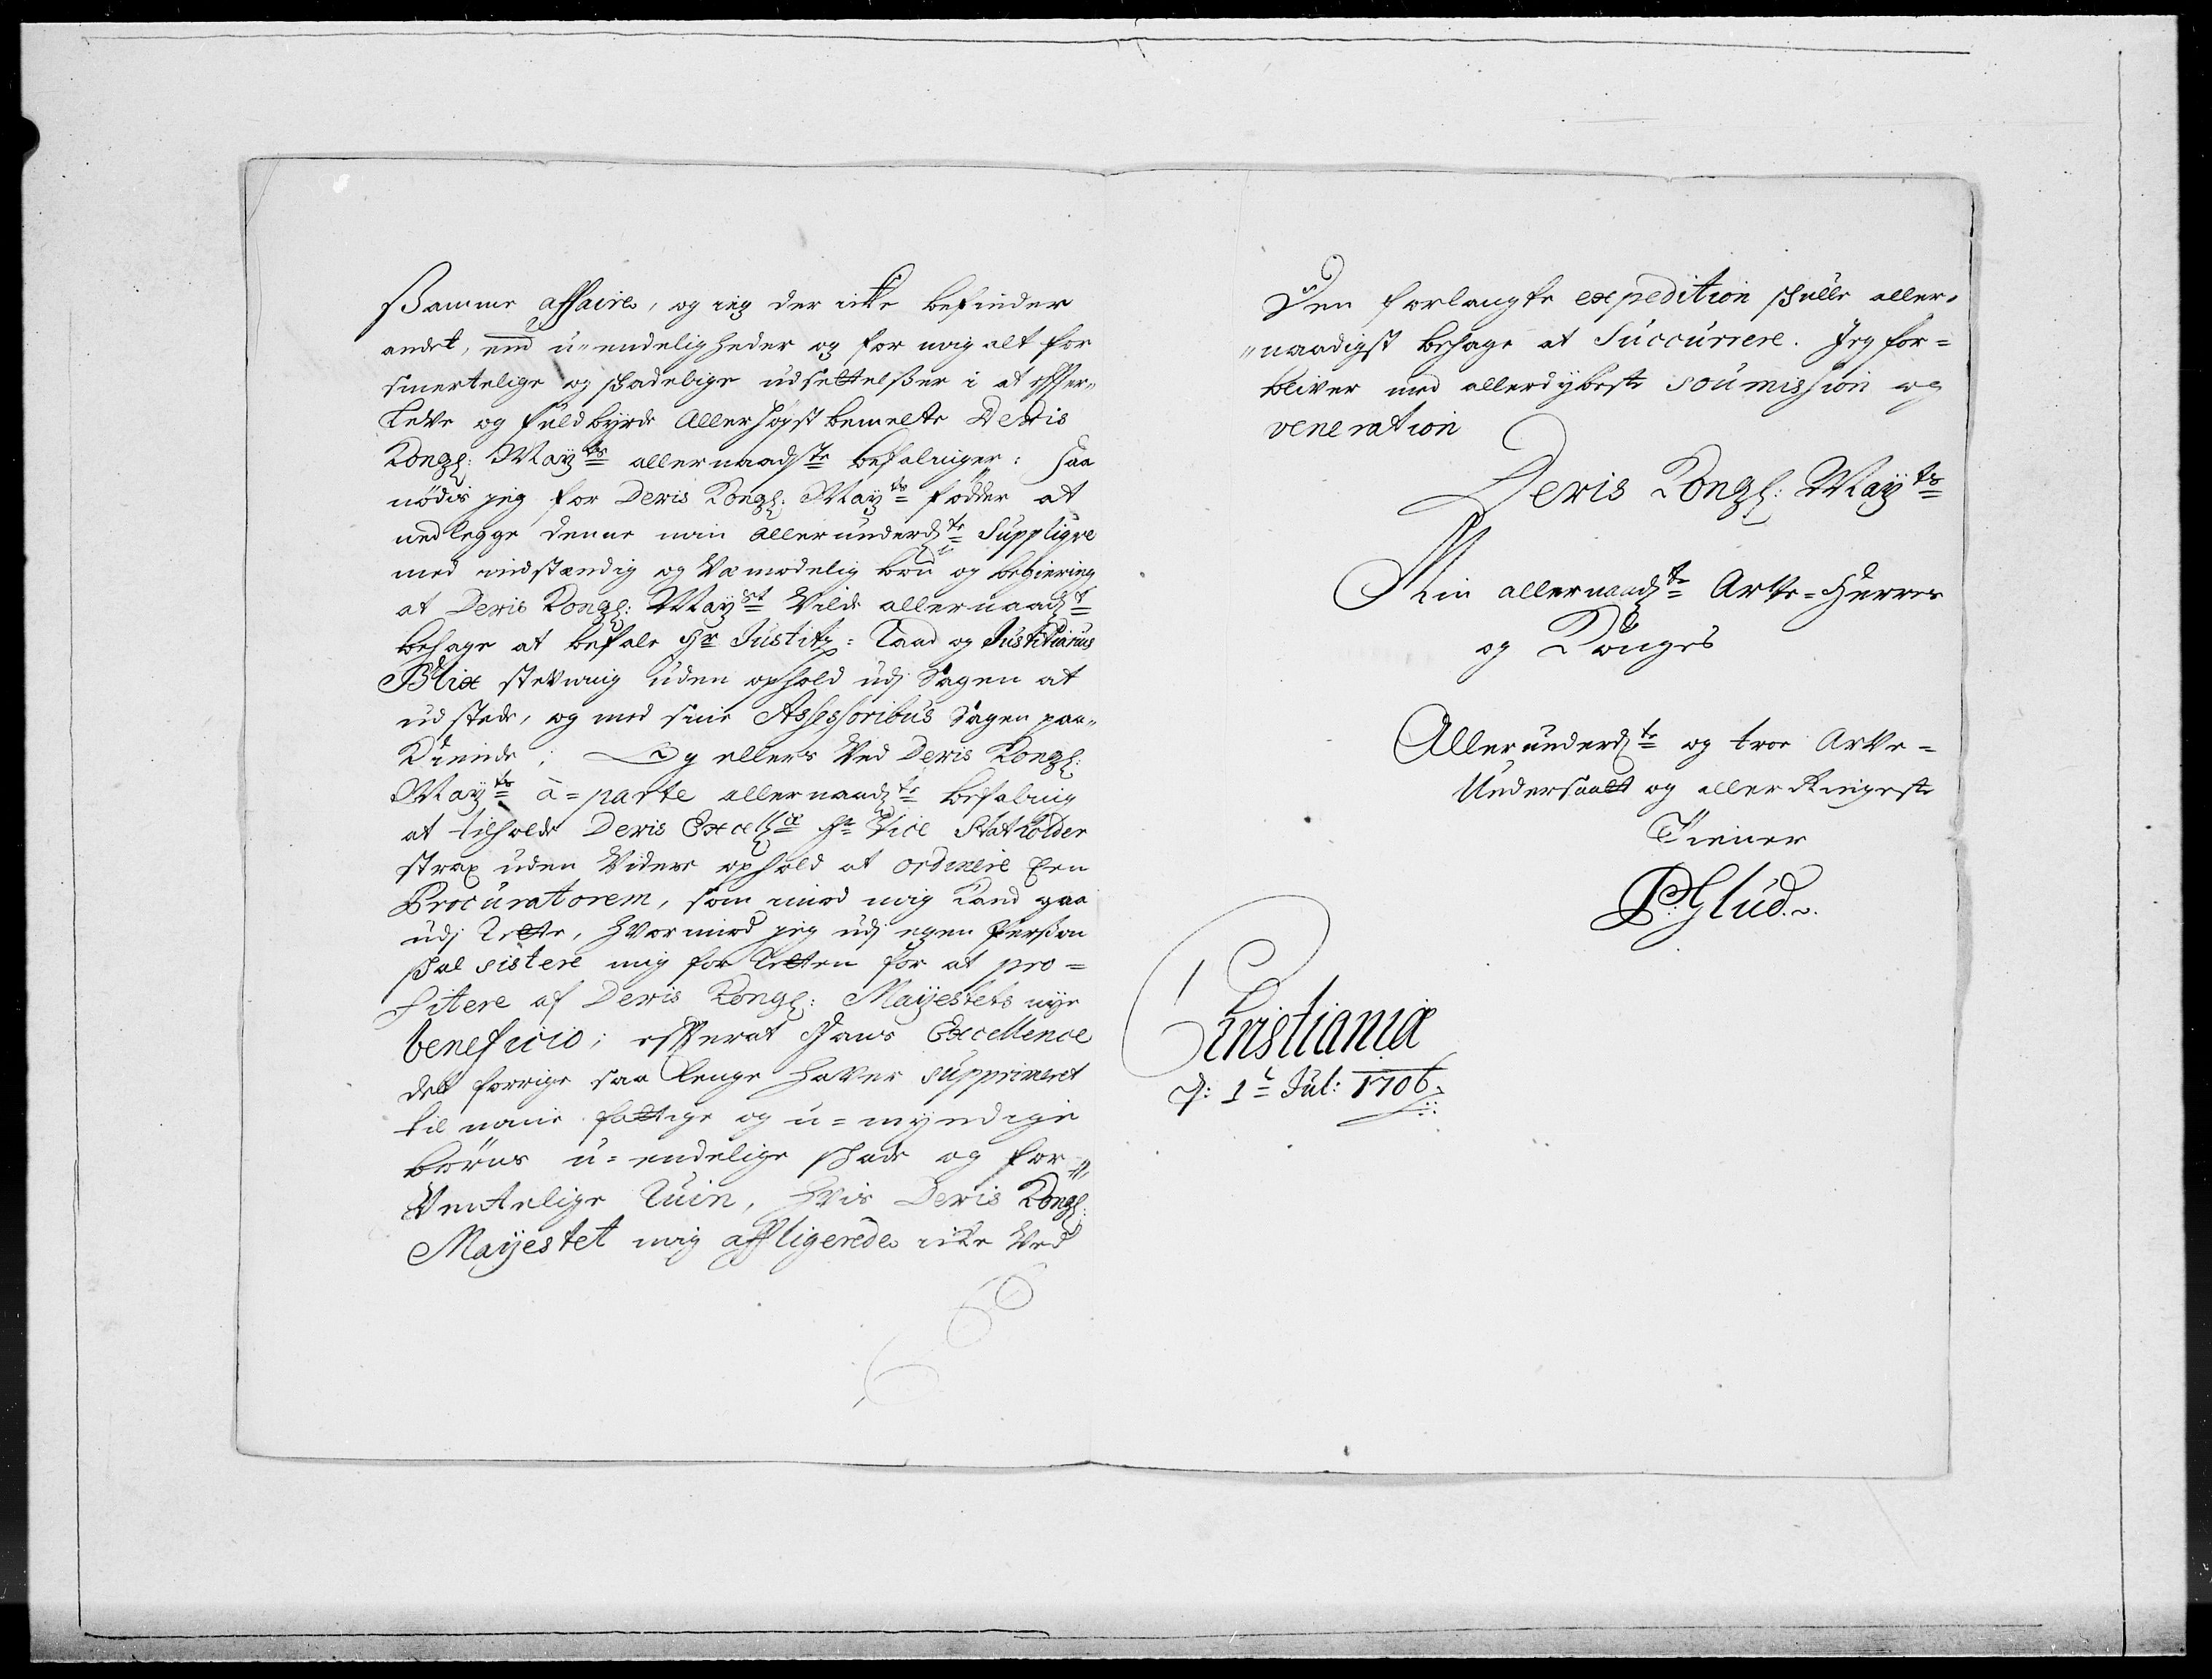 ßamme affaire, og jeg der icke befinder
andet, end u-endeligheder og for mig alt for
smertelige og skadelige udsettelßer i at effter-
leve og fuldbyrde Allerhøyst bemelte Deris
Kongl: May:ts allernaadste befalinger: Saa
nødis jeg for Deris Kongl: May:ts fødder at
nedlegge denne min allerunderd:te Supplique
med indstændig og Vemodelig bøn og begiering
at Deris Kongl: May:st Vilde allernaad:st
behage at befale Hr Justitz: Raad og Justitiarius
Blix stevning uden ophold udj Sagen at
udstede, og med sine Assessoribus Sagen paa-
Kiende; Og ellers Ved Deris Kongl:
May:ts à=parte allernaad:te befaling
at tilholde Deris Excell:ce Hr Vice Statholder
strax uden Videre ophold at ordinere Een
Procuratorem, som imod mig Kand gaa
udj Rette, hvorimod jeg udj egen Person
skal sistere mig for Retten for at pro=
fitere af Deris Kongl: Mayestets nye
beneficio; efferat Hans Excellence
det forrige saa lenge haver supprimeret
til mine fattige og u=myndige
børns u=endelige skade og for-
Ventelige Ruin, hvis Deris Kongl:
Mayestet mig affligerede icke Ved
Den forlangte expedition skulle aller-
naadigst behage at Succurrere. Jeg for=
bliver med allerdybeste soumission og
veneration
Deris Kongl: May:ts
Min allernaad:te Arve=Herres
og Konges
Allerunderd:te og troe Arve=
Undersaatt og allerRingeste
Tiener
P: Glud.
Christianiæ
d: 1t Jul: 1706